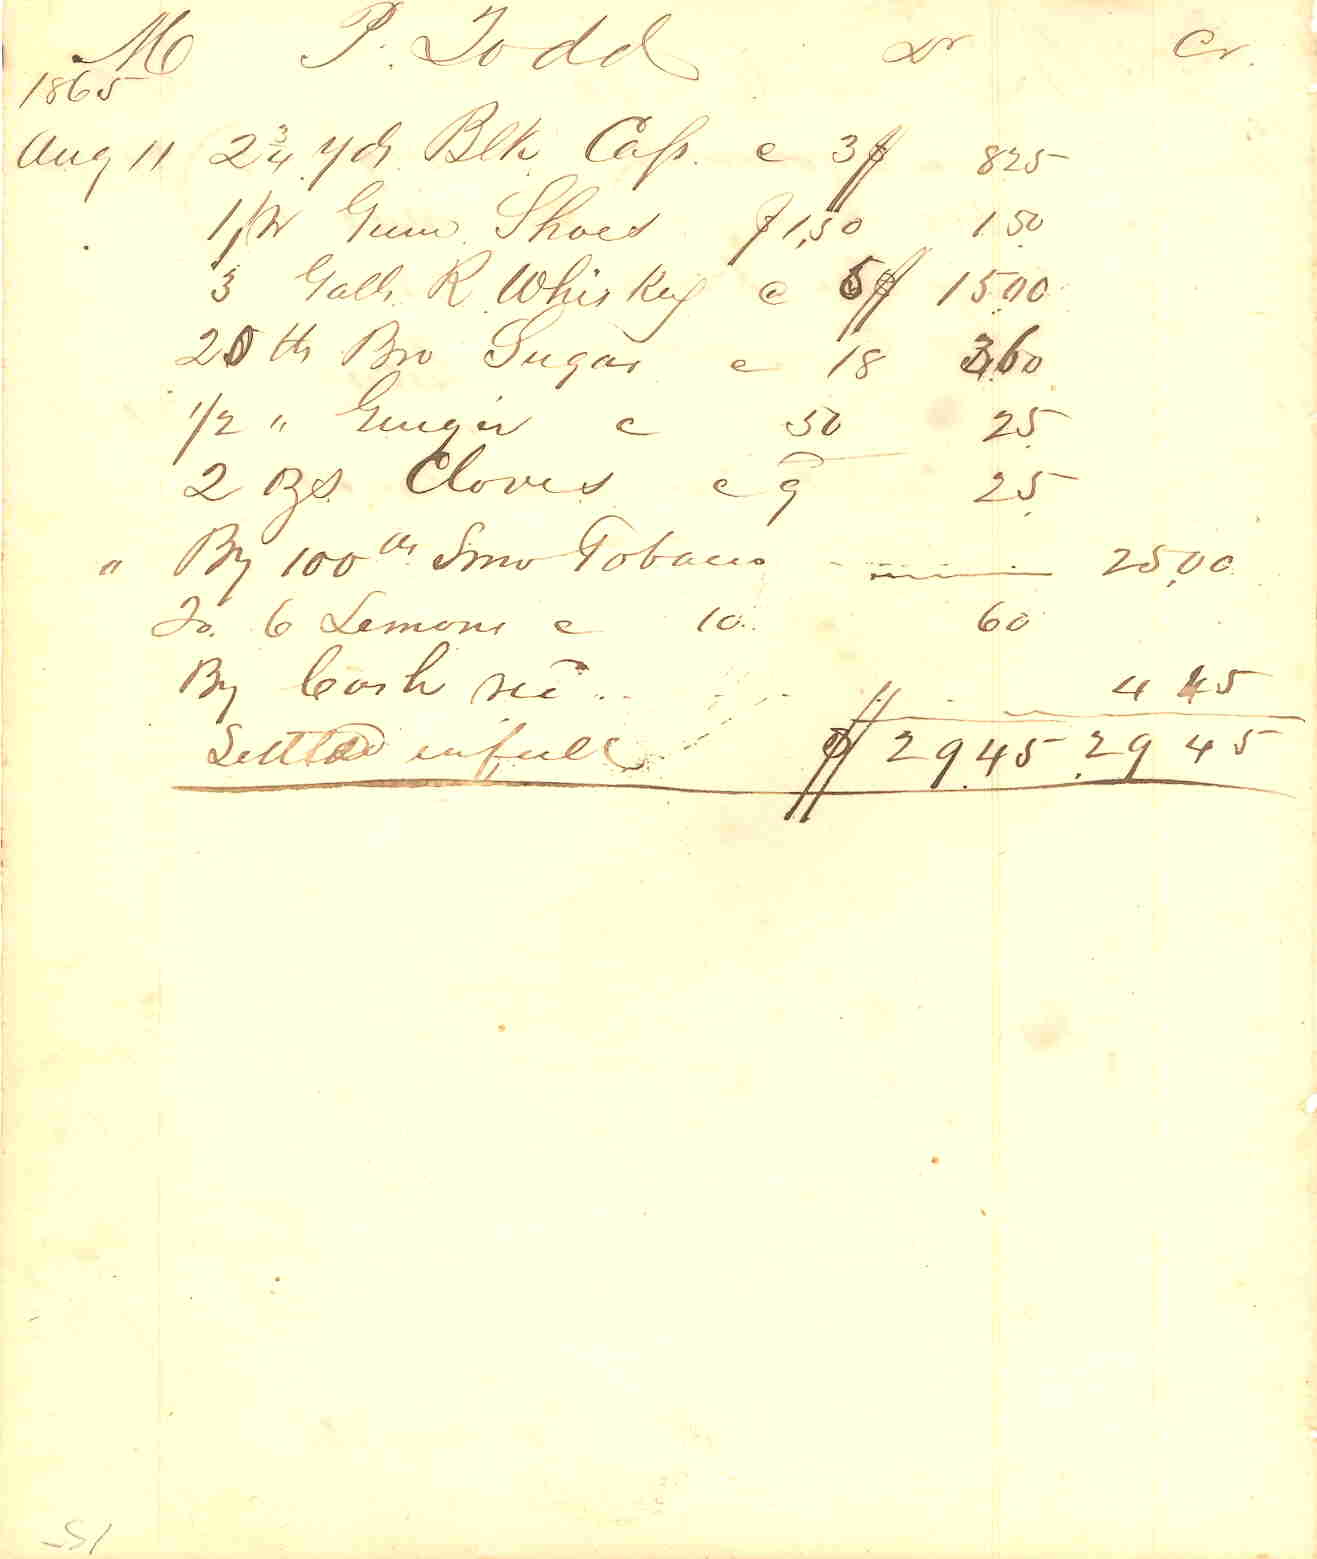 M P. Todd Dr Cr.
1865
Aug 11 2 3/4 yds Blk Cass. @ 3$ 825
1 pr Gum Shoes $1,50 1 50
3 Galls R Whiskey @ 5$ 1500
20 lbs Bro Sugar @ 18 3.60
1/2 " Ginger @ 50 25
2 ozs Cloves @ 25
" By 100 lbs Smo Tobacco 25,00
To. 6 Lemons @ 10. 60
By Cash rec
4 45
Settled in full $ 29.45 29 45
15